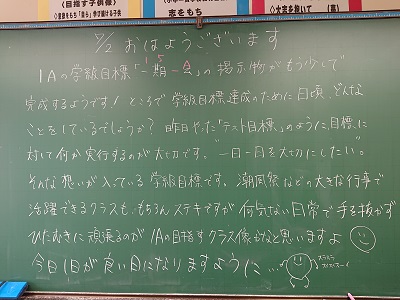 《目指す子供像》
志をもち
5/2 おはようございます
1Aの学級目標「一期一会」の掲示物がもう少しで
1 5 A
完成するようです！ところで学級目標達成のために日頃、どんな
ことをしているでしょうか？昨日やった「テスト目標」のように目標に
対して何か実行するのが大切です。"一日一日を大切にしたい"。
そんな想いが入っている学級目標です。潮風祭などの大きな行事で
活躍できるクラスも、もちろんステキですが何気ない日常で手を抜かず
ひたむきに頑張るのが1Aの目指すクラス像かなと思いますよ
今日1日が良い日になりますように…